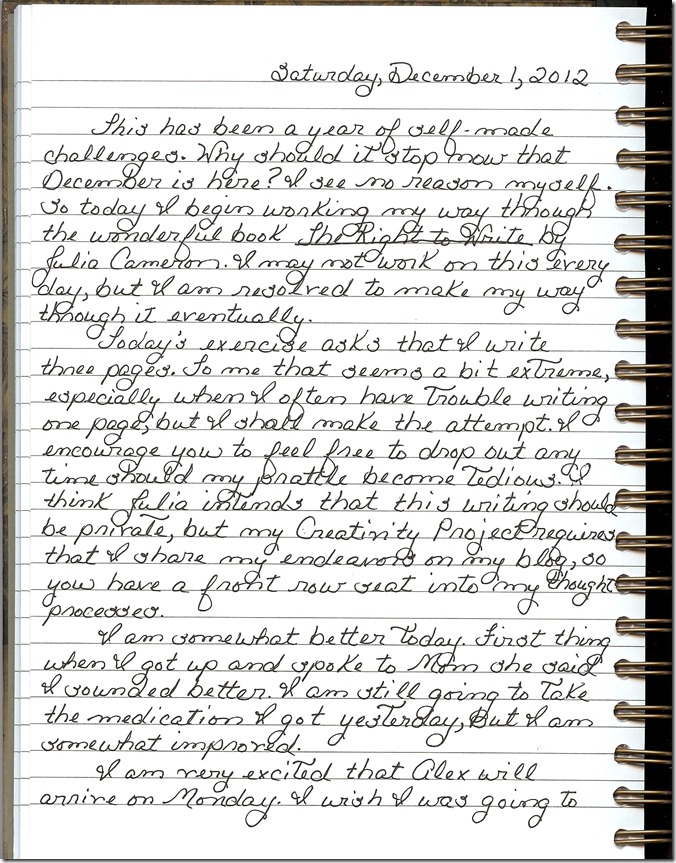 Saturday, December 1, 2012
This has been a year of self-made
challenges. Why should it stop now that
December is here? I see no reason myself.
So today I begin working my way through
the wonderful book The Right to Write by
Julia Cameron. I may not work on this every
day, but I am resolved to make my way
through it eventually.
Today's exercise asks that I write
three pages. To me that seems a bit extreme,
especially when I often have trouble writing
one page, but I shall make the attempt. I
encourage you to feel free to drop out any
time should my prattle become tedious. I
think Julia intends that this writing should
be private, but my Creativity Project requires
that I share my endeavors on my blog, so
you have a front row seat into my thought
processes.
I am somewhat better today. First thing
when I got up and spoke to Mom she said
I sounded better. I am still going to take
the medication I got yesterday, but I am
somewhat improved.
I am very excited that Alex will
arrive on Monday. I wish I was going to